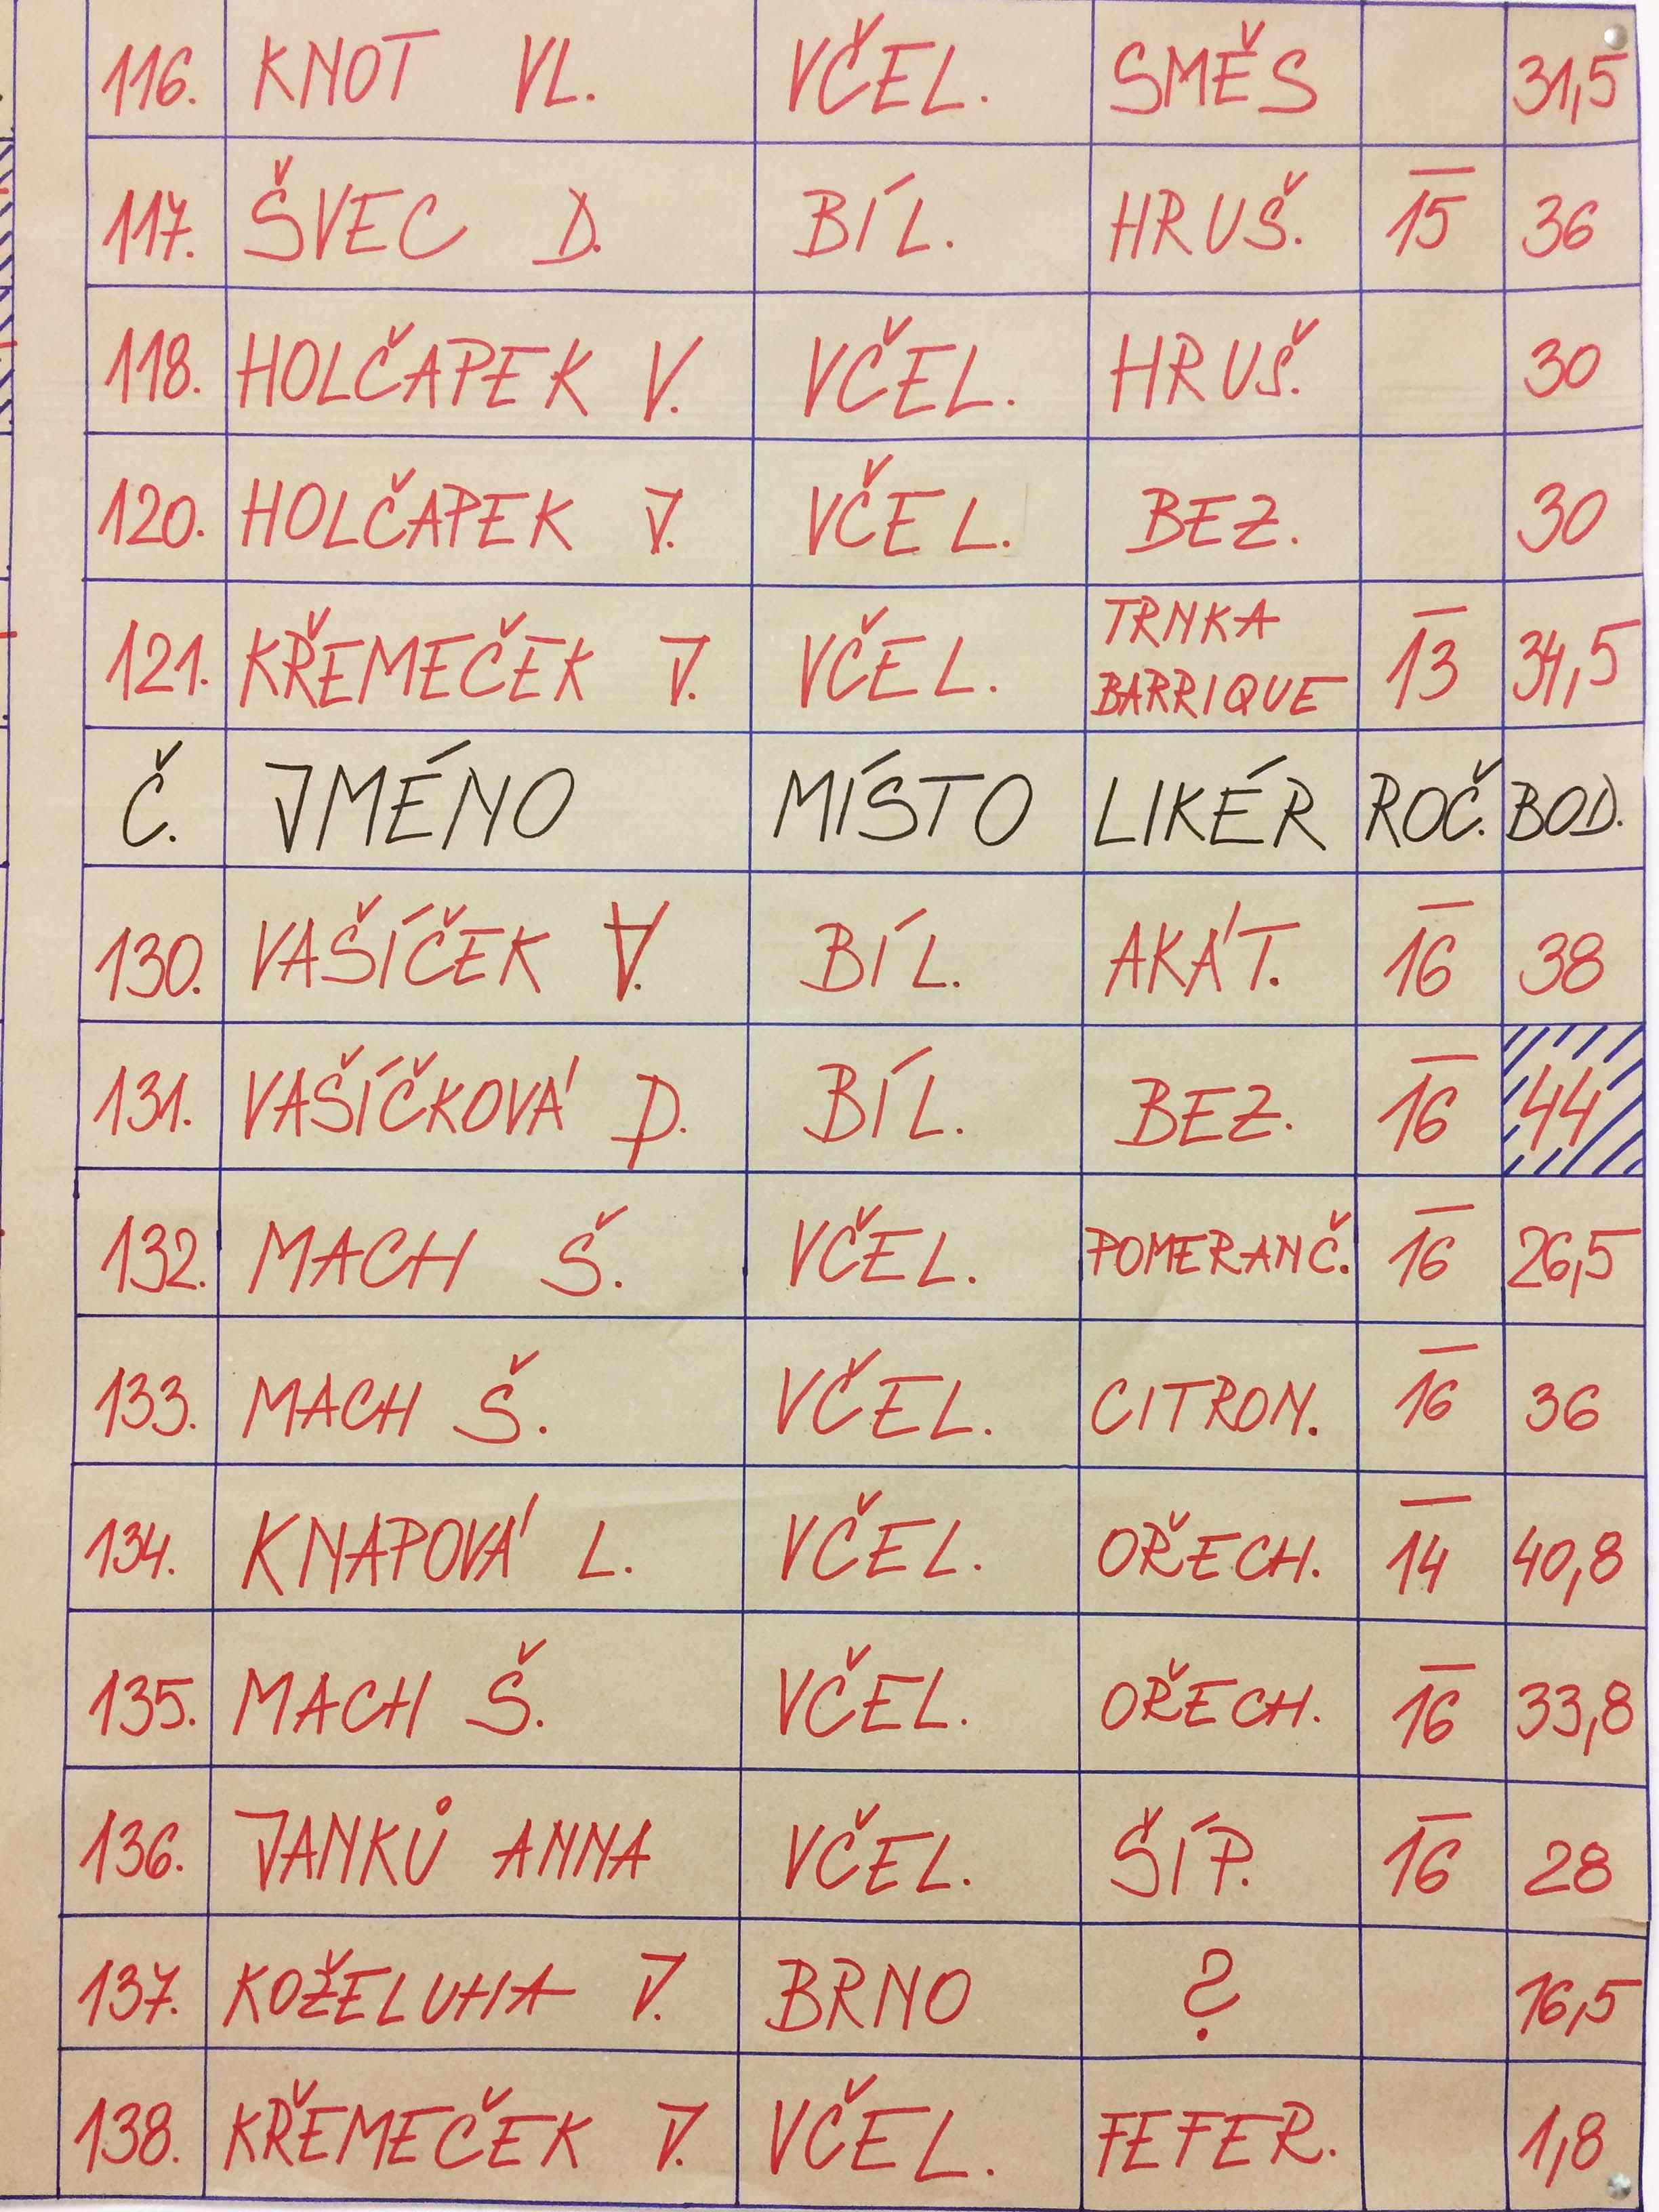 116. KNOT VL. VČEL. SMĚS 31,5
117. ŠVEC D. BÍL. HRUŠ. 15 36
118. HOLČAPEK V. VČEL. HRUŠ. 30
120. HOLČAPEK J. VČEL. BEZ. 30
121. KŘEMEČEK J. VČEL. TRNKA BARRIQUE 13 34,5
Č. JMÉNO MÍSTO LIKÉR ROČ. BOD.
130. VAŠÍČEK V. BÍL. AKÁT. 16 38
131. VAŠÍČKOVÁ D. BÍL. BEZ. 16 44
132. MACH Š. VČEL. POMERANČ. 16 26,5
133. MACH Š. VČEL. CITRON. 16 36
134. KNAPOVÁ L. VČEL. OŘECH. 14 40,8
135. MACH Š. VČEL. OŘECH. 16 33,8
136. JANKŮ ANNA VČEL. ŠÍP. 16 28
137. KOŽELUHA J. BRNO ? 16,5
138. KŘEMEČEK J. VČEL. FEFER. 1,8